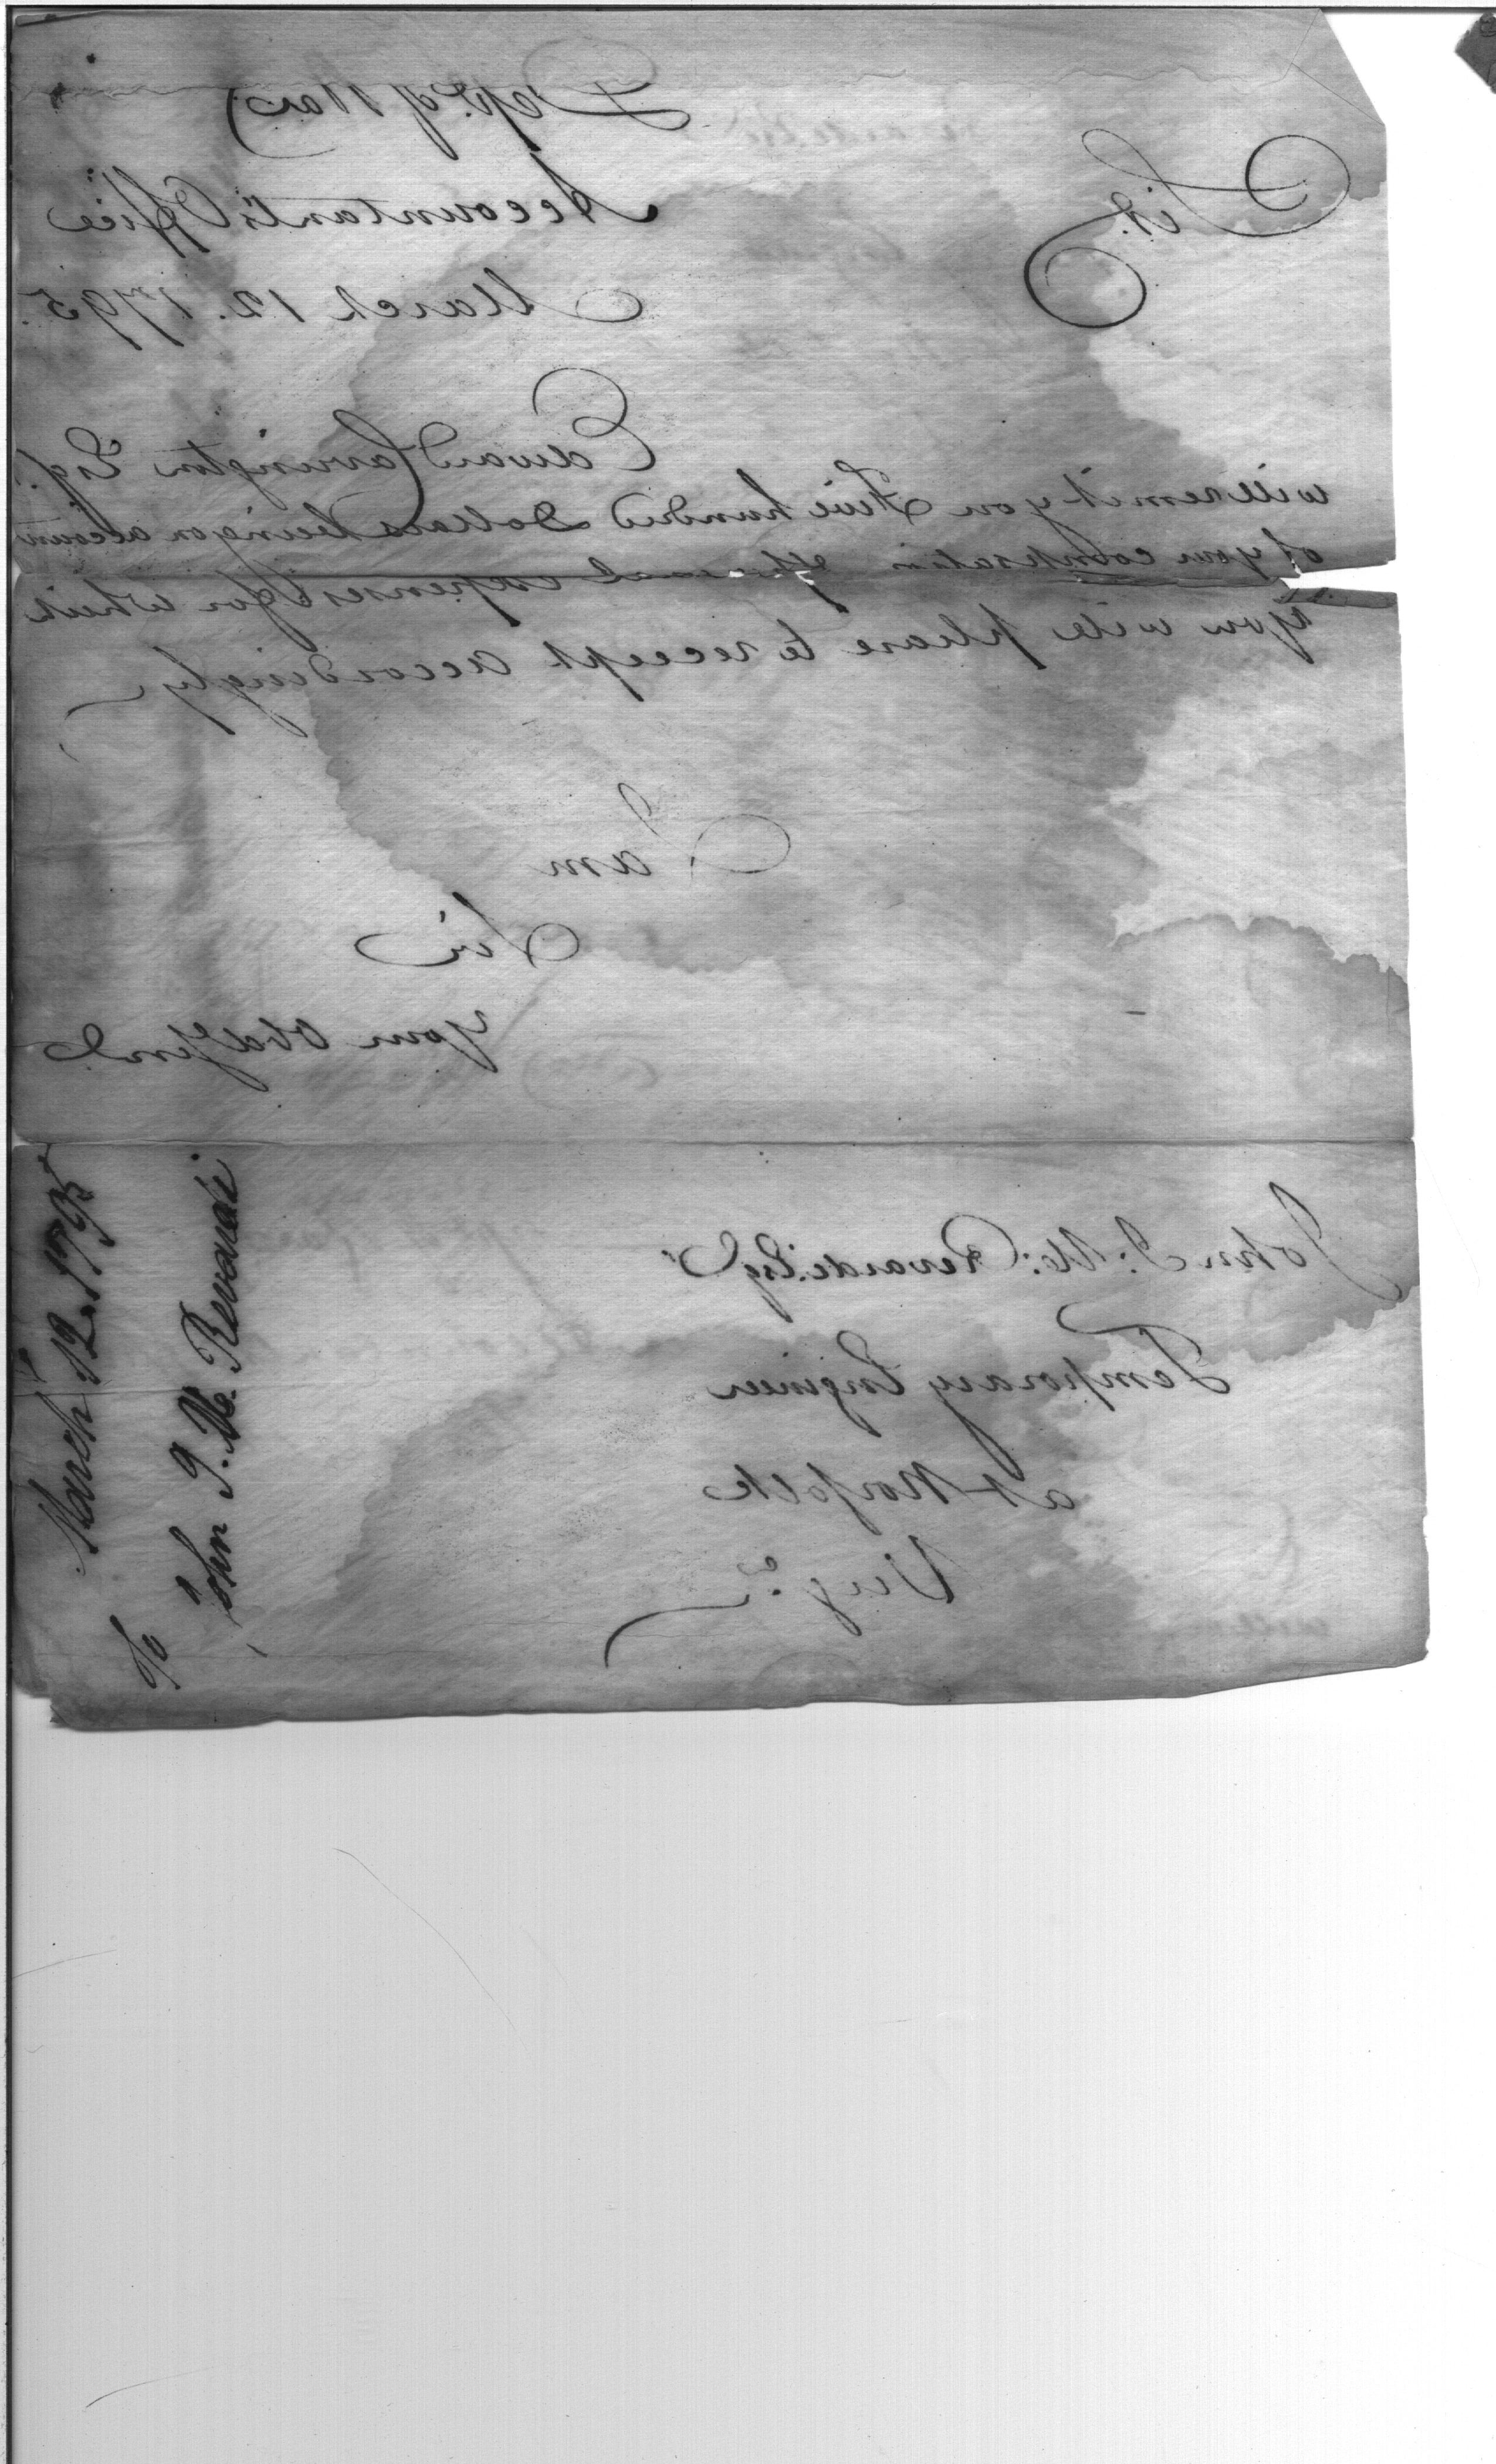 Dept. of War
Accountant's Office
March 12. 1795.
Sir.
Edward Carrington Esqr.
will remit you Five hundred Dollars being on account
of your compensation expenses for which
you will please to receipt accordingly
I am
Sir
your Obd Servt.
John J: M: Revardi. Esqr
Temporary Engineer
at Norfolk
Virga.
March 12. 1795
To
John J. M. Revardi